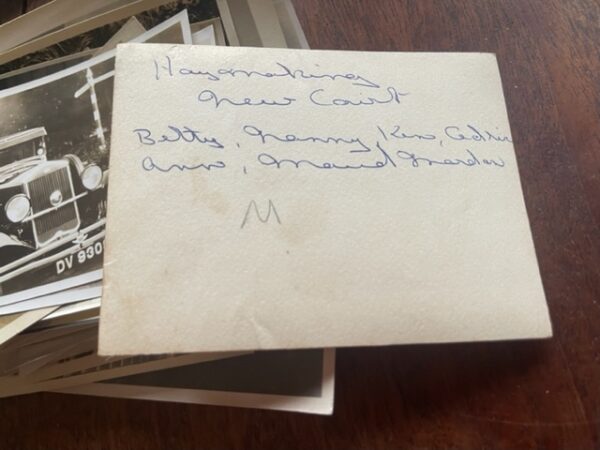 Haymaking
New Court
Betty, Nanny Ken, Cedric
Ann, Maud Marden
M
DV 930